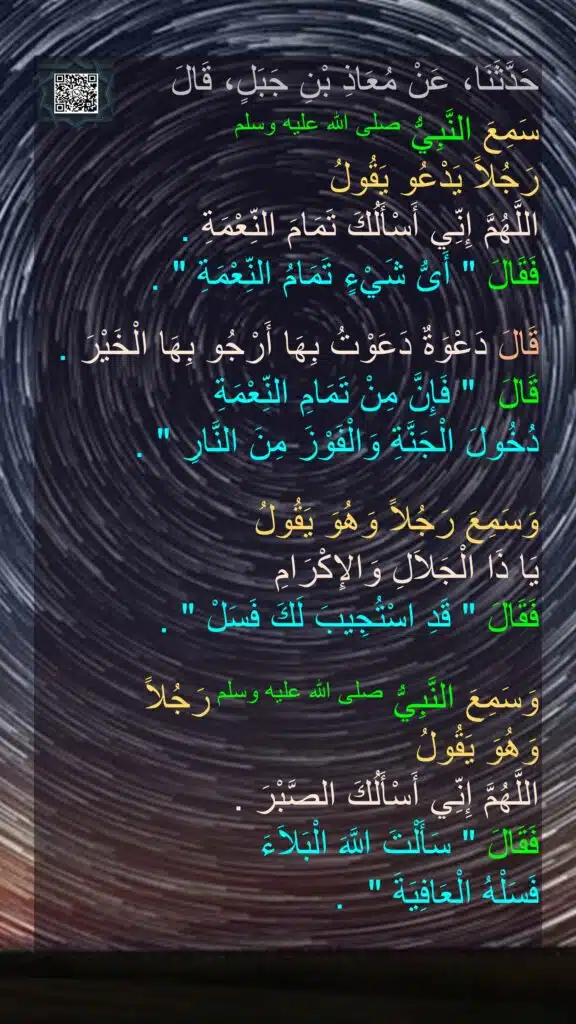 حَدَّثَنَا، عَنْ مُعَاذِ بْنِ جَبَلٍ، قَالَ
سَمِعَ النَّبِيُّ صلى الله عليه وسلم
رَجُلاً يَدْعُو يَقُولُ
اللَّهُمَّ إِنِّي أَسْأَلُكَ تَمَامَ النِّعْمَةِ .
فَقَالَ " أَىُّ شَيْءٍ تَمَامُ النِّعْمَةِ " .
قَالَ دَعْوَةٌ دَعَوْتُ بِهَا أَرْجُو بِهَا الْخَيْرَ .
قَالَ " فَإِنَّ مِنْ تَمَامِ النِّعْمَةِ
دُخُولَ الْجَنَّةِ وَالْفَوْزَ مِنَ النَّارِ " .
وَسَمِعَ رَجُلاً وَهُوَ يَقُولُ
يَا ذَا الْجَلاَلِ وَالإِكْرَامِ
فَقَالَ " قَدِ اسْتُجِيبَ لَكَ فَسَلْ " .
وَسَمِعَ النَّبِيُّ صلى الله عليه وسلم رَجُلاً
وَهُوَ يَقُولُ
اللَّهُمَّ إِنِّي أَسْأَلُكَ الصَّبْرَ .
فَقَالَ " سَأَلْتَ اللَّهَ الْبَلاَءَ
فَسَلْهُ الْعَافِيَةَ " .